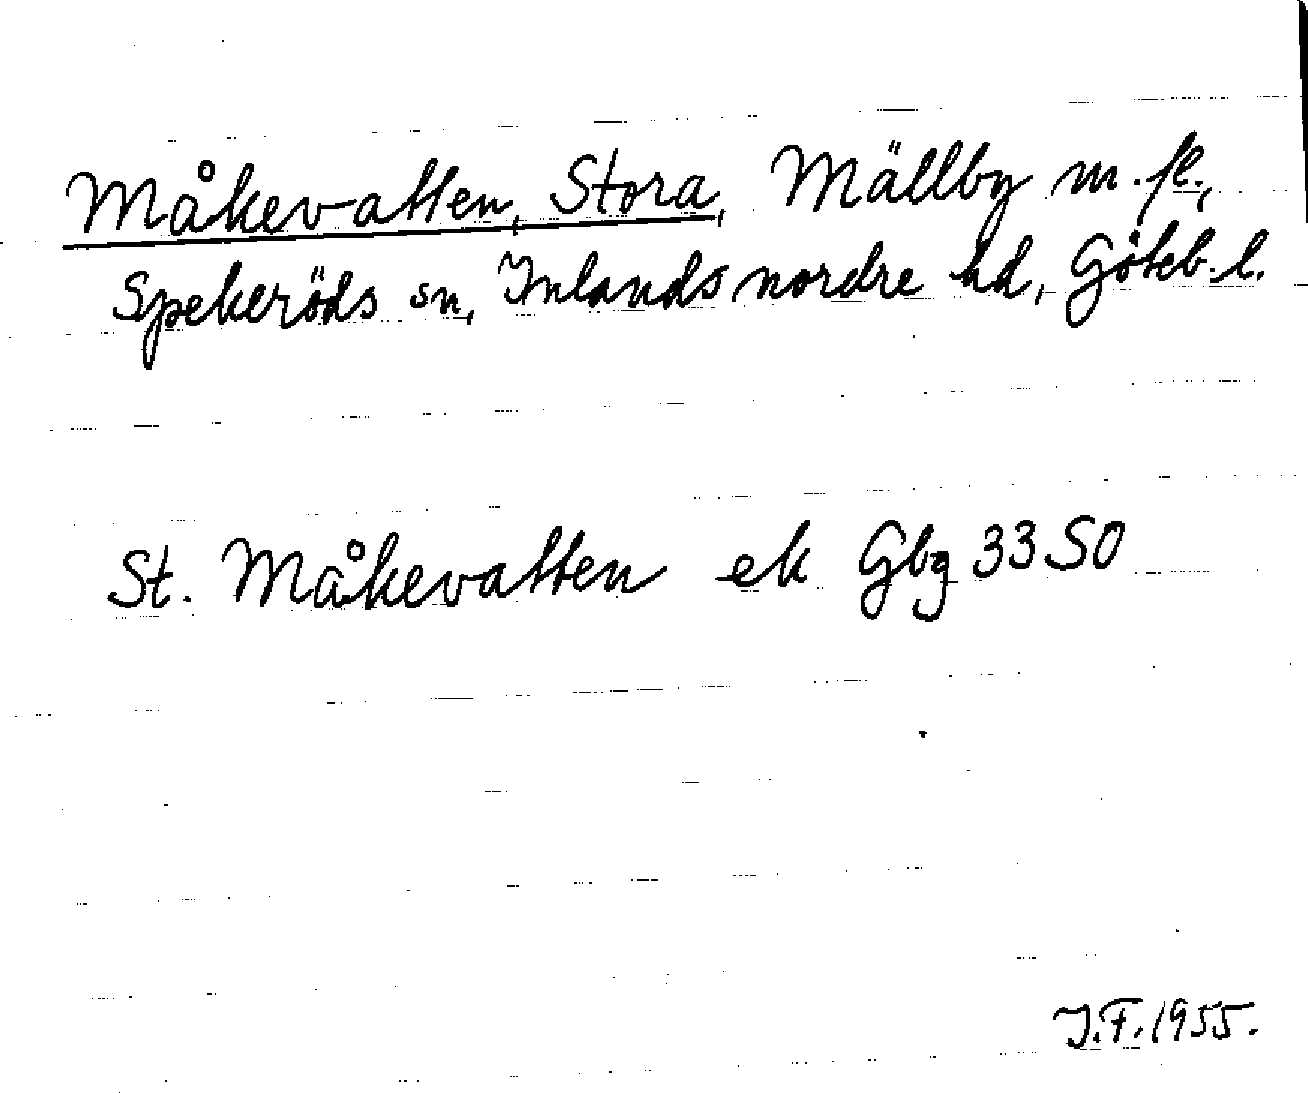 Måkevatten, Stora, Mällby m. fl.,
Spekeröds sn, Inlands nordre hd, Göteb. l.
St. Måkevatten ek Gbg 33 SO
I.F. 1955.